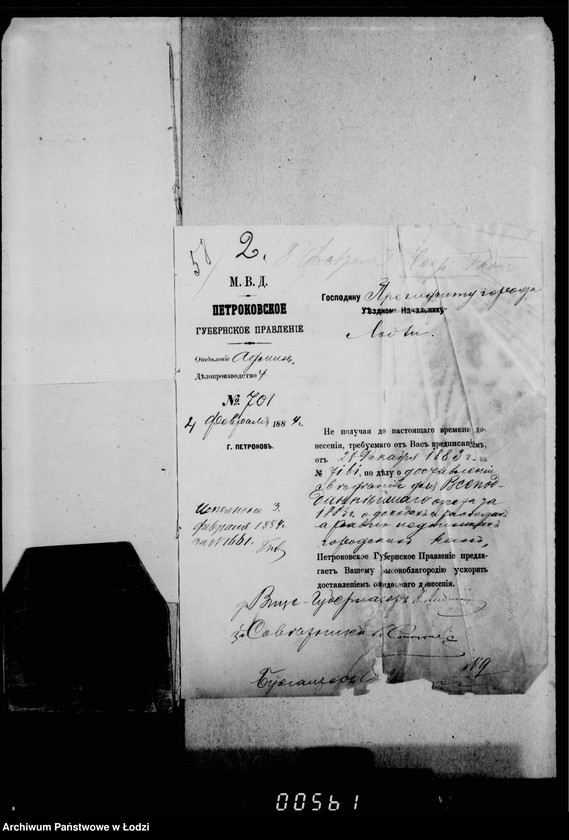 58
2.
М. В. Д.
ПЕТРОКОВСКОЕ
ГУБЕРНСКОЕ ПРАВЛЕНІЕ
Отдѣленіе Админ.
Дѣлопроизводство 4
№ 701
4 февраля 1884 г.
Г. ПЕТРОКОВЪ.
Исполнено 3.
февраля 1884.
за № 1661.
Господину Президенту города
Уѣздному Начальнику
Лодзи.
Не получая до настоящаго времени до-
несенія, требуемаго отъ Васъ предписаніемъ,
отъ 28 Декабря 1883 г. за
№ 7161, по дѣлу о доставленіи
свѣдѣній для Всепод-
даннѣйшаго отчета за
1883 г. о доходахъ и расходахъ
а равно недоимкахъ
городскихъ кассъ,
Петроковское Губернское Правленіе предла-
гаетъ Вашему Высокоблагородію ускорить
доставленіемъ ожидаемаго донесенія.
Вице-Губернаторъ
За Совѣтника
Бухгалтеръ
00561
Archiwum Państwowe w Łodzi